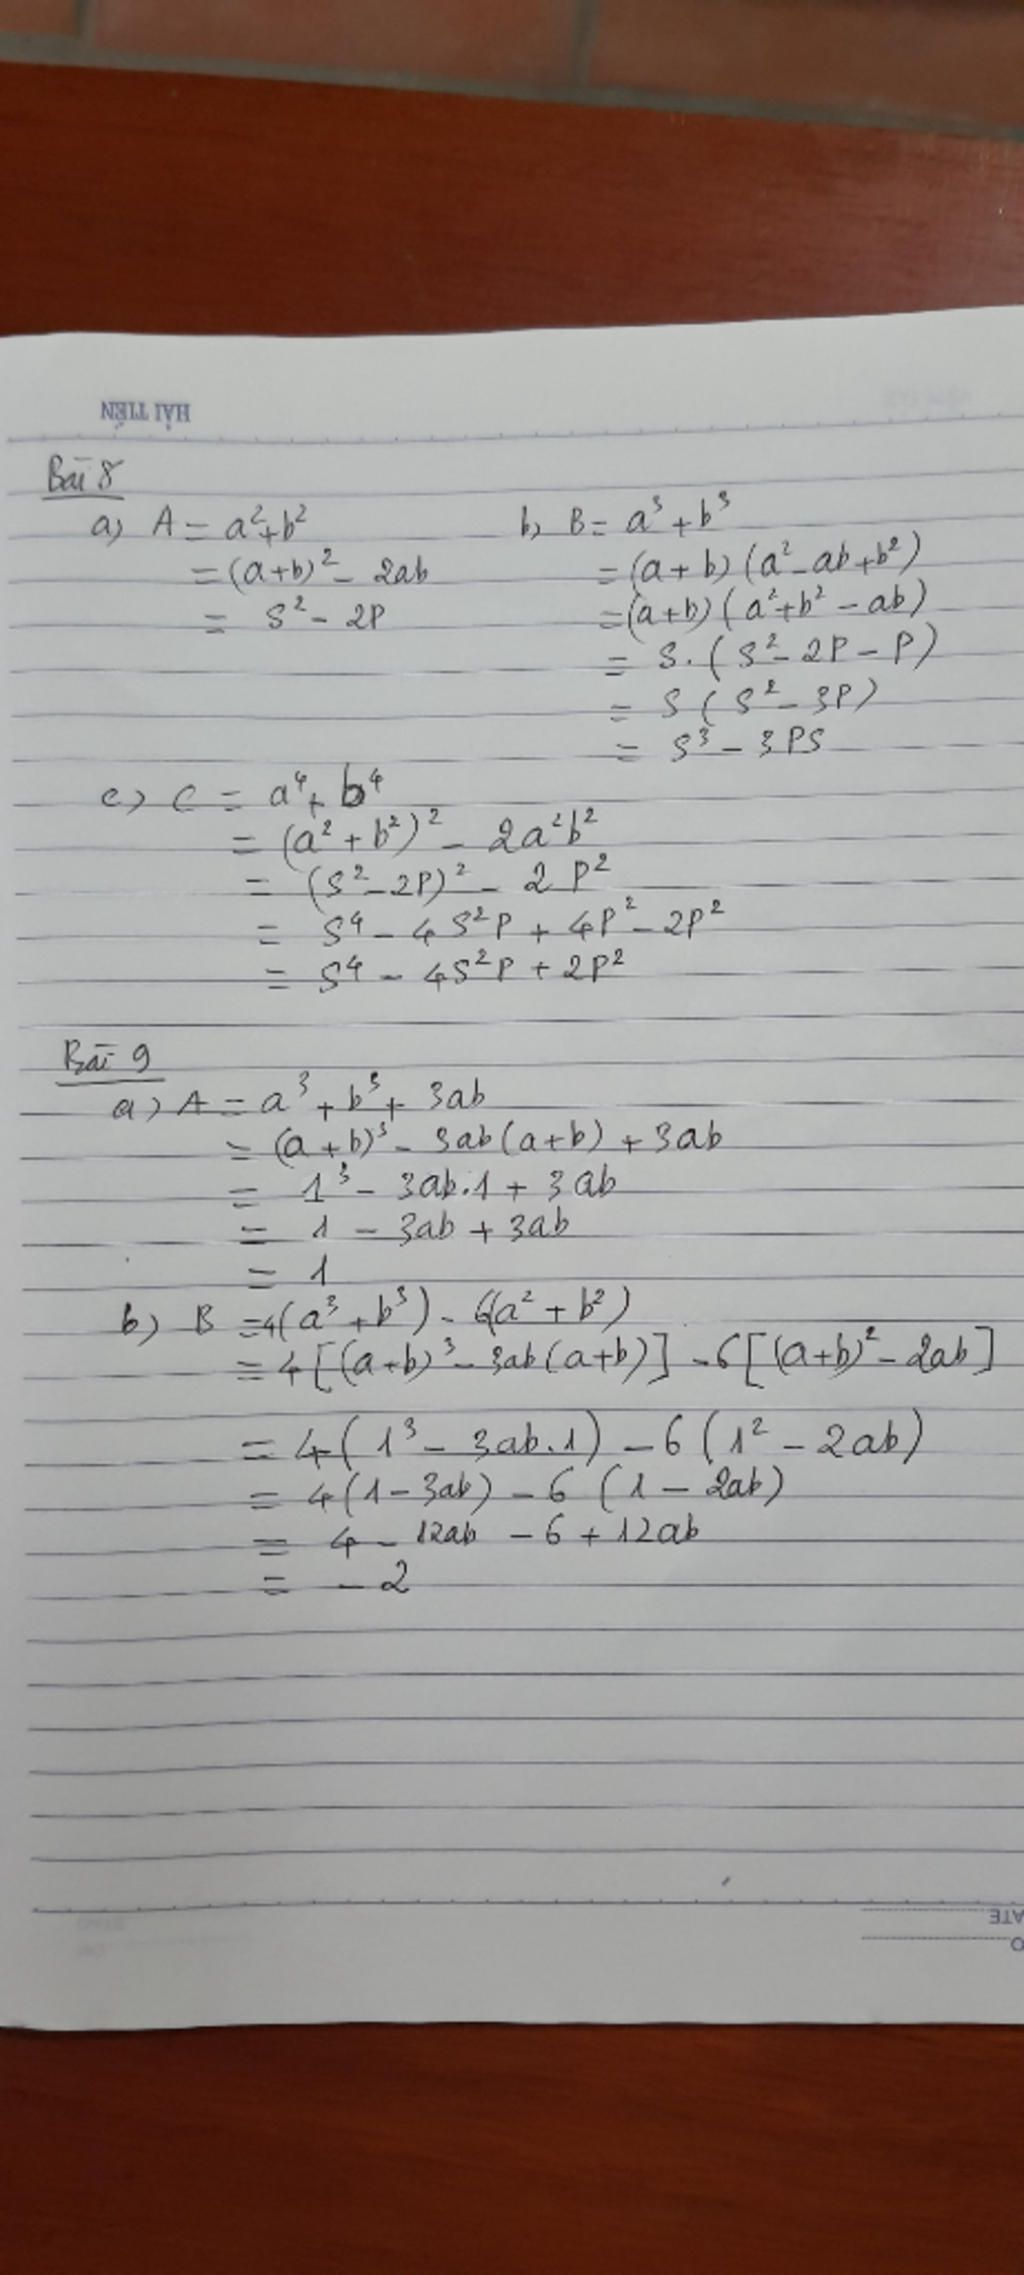 HẢI TIẾN
Bài 8
a) A = a² + b²
= (a+b)² - 2ab
= S² - 2P
b) B = a³ + b³
= (a+b)(a² - ab + b²)
= (a+b)(a² + b² - ab)
= S.(S² - 2P - P)
= S(S² - 3P)
= S³ - 3PS
c) C = a⁴ + b⁴
= (a² + b²)² - 2a²b²
= (S² - 2P)² - 2P²
= S⁴ - 4S²P + 4P² - 2P²
= S⁴ - 4S²P + 2P²
Bài 9
a) A = a³ + b³ + 3ab
= (a+b)³ - 3ab(a+b) + 3ab
= 1³ - 3ab.1 + 3ab
= 1 - 3ab + 3ab
= 1
b) B = 4(a³ + b³) - 6(a² + b²)
= 4[(a+b)³ - 3ab(a+b)] - 6[(a+b)² - 2ab]
= 4(1³ - 3ab.1) - 6(1² - 2ab)
= 4(1 - 3ab) - 6(1 - 2ab)
= 4 - 12ab - 6 + 12ab
= -2
ATE
O